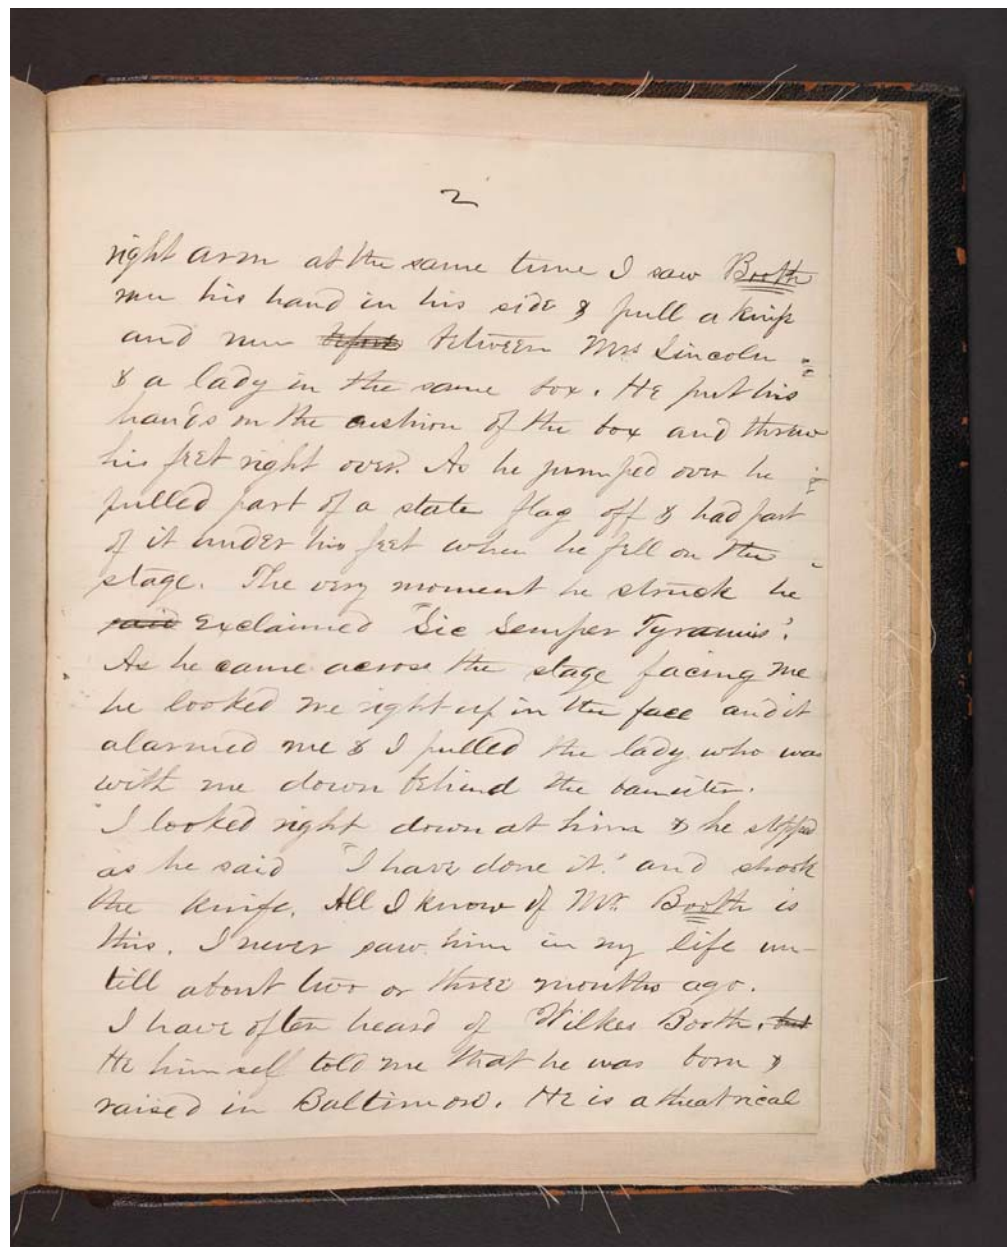 2
right arm at the same time I saw Booth
run his hand in his side & pull a knife
and run before between Mrs Lincoln
& a lady in the same box. He put his
hands on the cushion of the box and threw
his feet right over. As he jumped over he
pulled part of a state flag off & had part
of it under his feet when he fell on the
stage. The very moment he struck he
said exclaimed "Sic Semper Tyrannis".
As he came across the stage facing me
he looked me right up in the face and it
alarmed me & I pulled the lady who was
with me down behind the banister.
I looked right down at him & he stopped
as he said "I have done it." and shook
the knife. All I know of Mr. Booth is
this. I never saw him in my life un-
till about two or three months ago.
I have often heard of Wilkes Booth. but
He himself told me that he was born &
raised in Baltimore. He is a theatrical